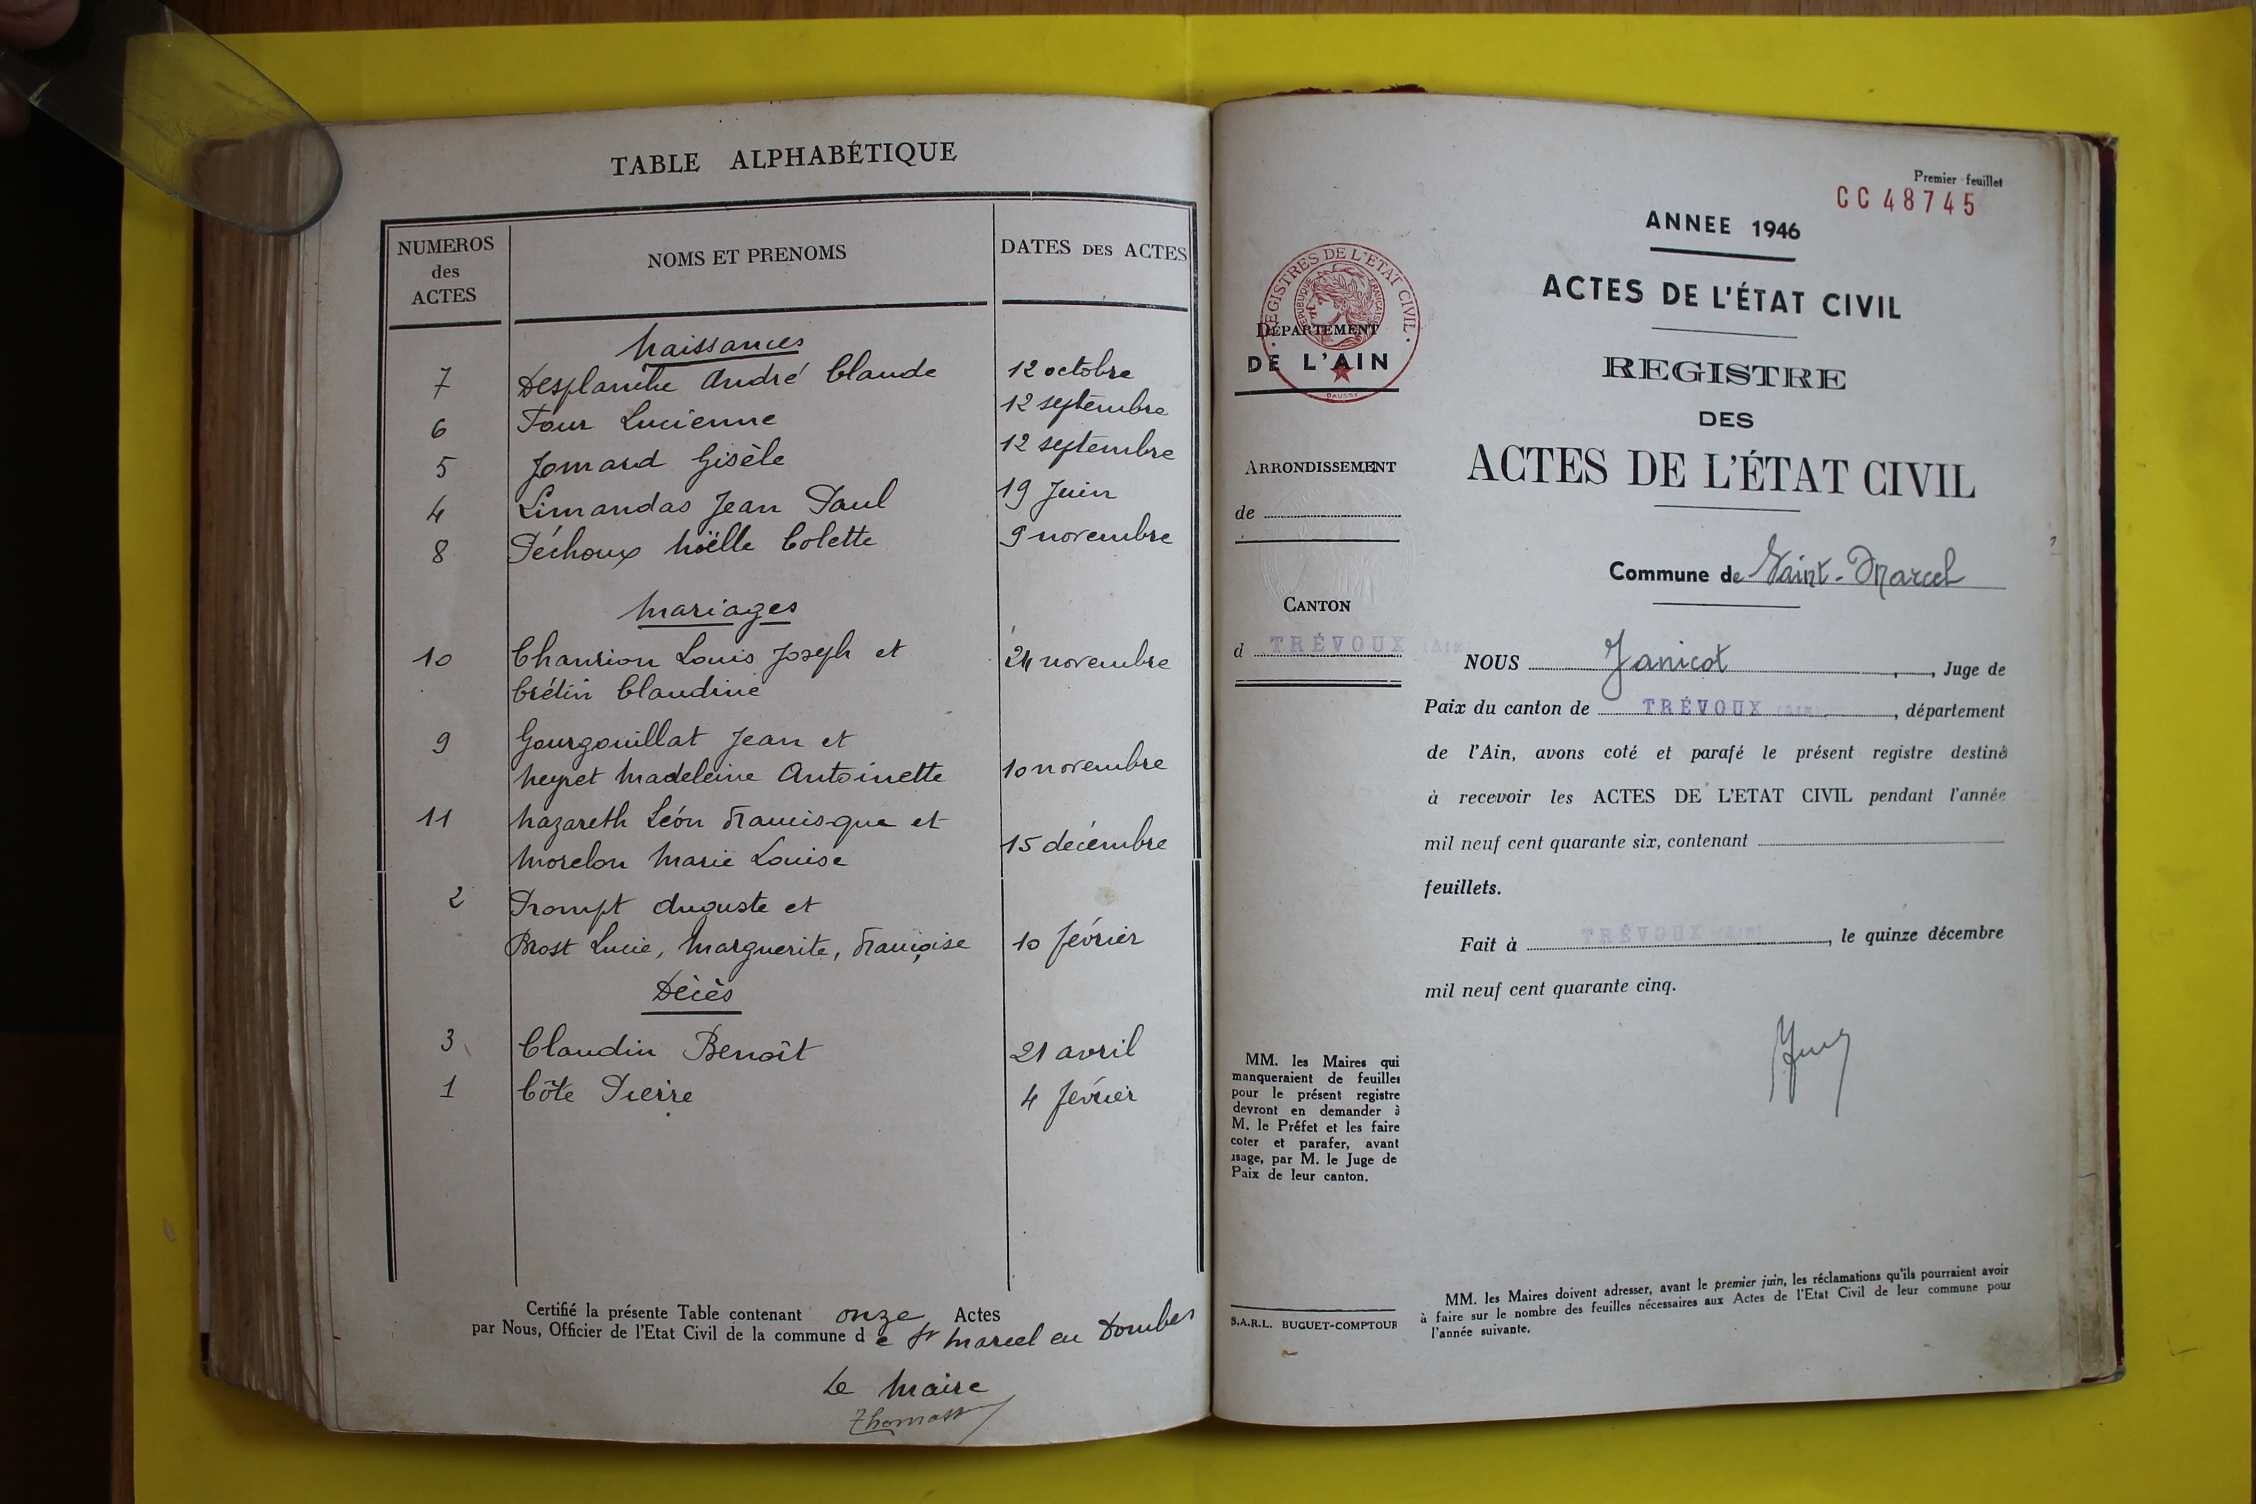 TABLE ALPHABÉTIQUE
NUMEROS
des
ACTES
NOMS ET PRENOMS
DATES DES ACTES
Naissances
7 Desplanche André Claude 12 octobre
6 Four Lucienne 12 septembre
5 Jomard Gisèle 12 septembre
4 Limandas Jean Paul 19 Juin
8 Péchoux Noëlle Colette 9 novembre
Mariages
10 Chanrion Louis Joseph et 24 novembre
Crétin Claudine
9 Gourgouillat Jean et
Neyret Madeleine Antoinette 10 novembre
11 Nazareth Léon Francisque et
Morelon Marie Louise 15 décembre
2 Prompt Auguste et
Brost Lucie, Marguerite, Françoise 10 février
Décès
3 Claudin Benoît 21 avril
1 Côte Pierre 4 février
Certifié la présente Table contenant onze Actes
par Nous, Officier de l'Etat Civil de la commune d e St Marcel en Dombes
Le Maire
Premier feuillet
CC 48745
ANNEE 1946
ACTES DE L'ÉTAT CIVIL
REGISTRE
DES
ACTES DE L'ÉTAT CIVIL
REGISTRES DE L'ETAT CIVIL
REPUBLIQUE FRANÇAISE
DAUSSY
DÉPARTEMENT
DE L'AIN
ARRONDISSEMENT
de
CANTON
d TRÉVOUX (Ain)
Commune de Saint-Marcel
NOUS Janicot, Juge de
Paix du canton de TRÉVOUX (Ain), département
de l'Ain, avons coté et parafé le présent registre destiné
à recevoir les ACTES DE L'ETAT CIVIL pendant l'année
mil neuf cent quarante six, contenant
feuillets.
Fait à TRÉVOUX (Ain), le quinze décembre
mil neuf cent quarante cinq.
MM. les Maires qui
manqueraient de feuilles
pour le présent registre
devront en demander à
M. le Préfet et les faire
coter et parafer, avant
usage, par M. le Juge de
Paix de leur canton.
S.A.R.L. BUGUET-COMPTOUR
MM. les Maires doivent adresser, avant le premier juin, les réclamations qu'ils pourraient avoir
à faire sur le nombre des feuilles nécessaires aux Actes de l'Etat Civil de leur commune pour
l'année suivante.